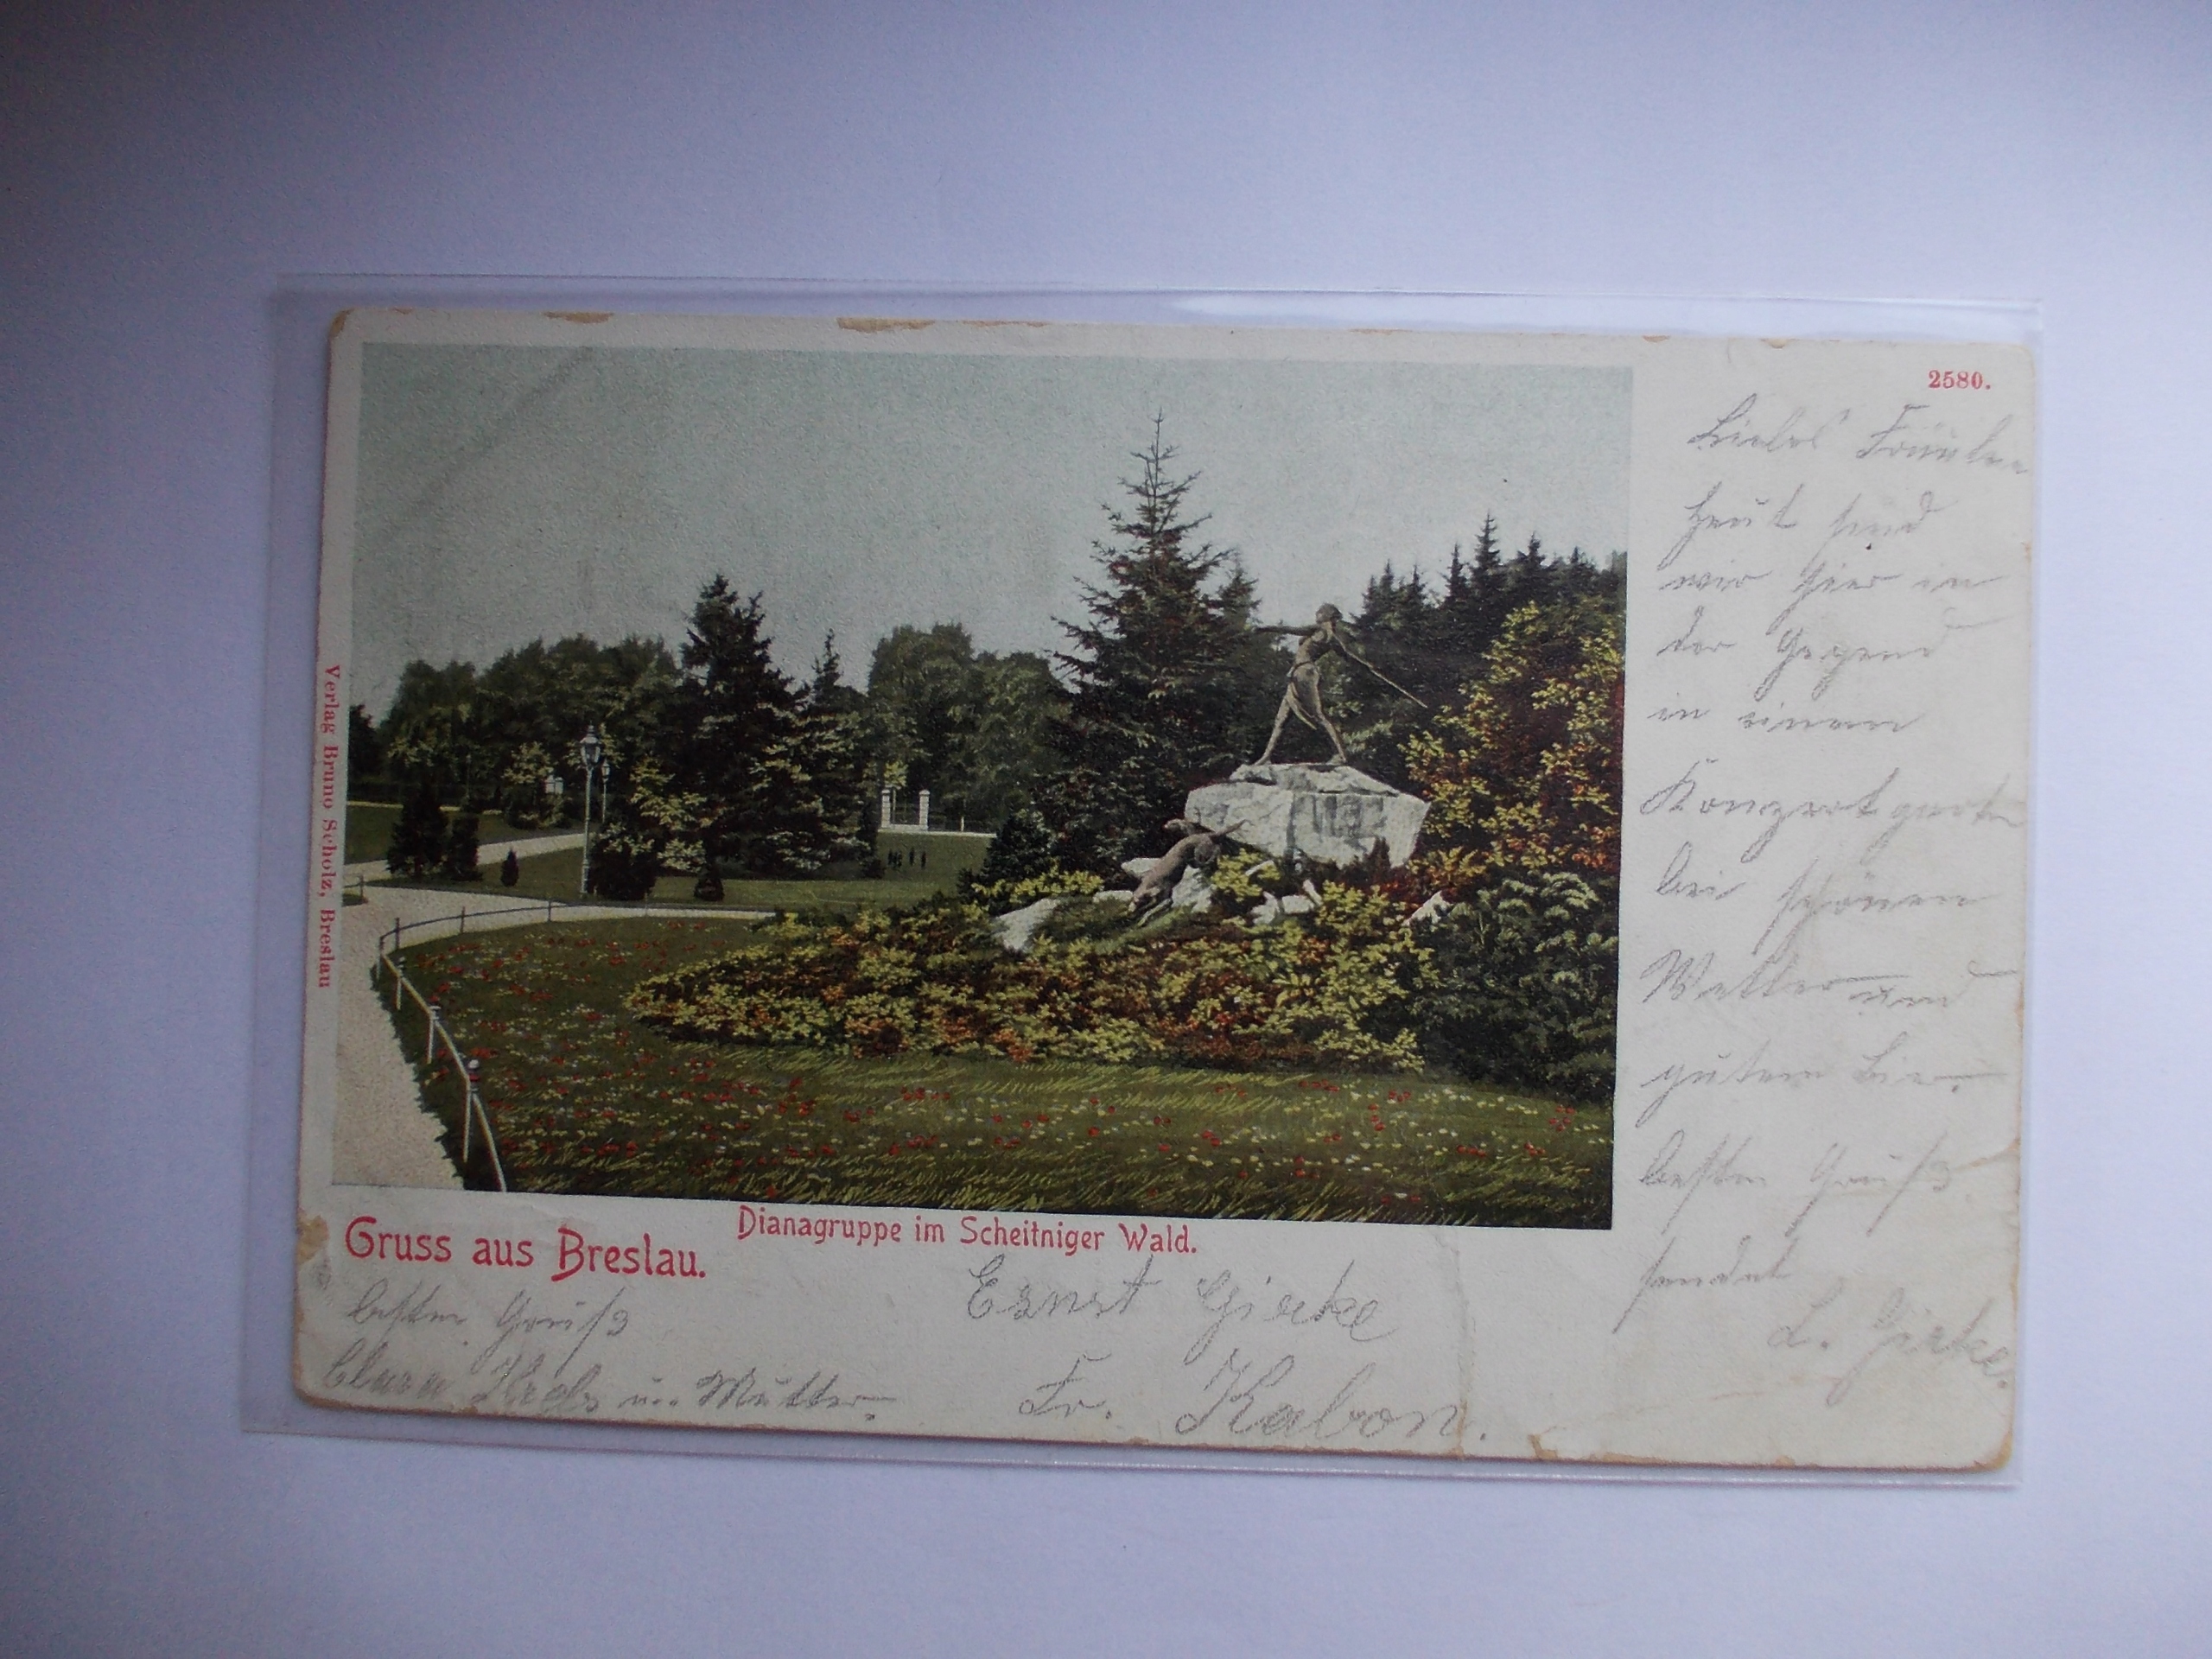 2580.
Liebes Fräulein
Heut sind
wir hier in
der Gegend
in einem
Konzertgarten
bei schönen
Wetter und
gutem Bier.
besten Gruß
sendet
L. Gierke.
Verlag Bruno Scholz, Breslau
Gruss aus Breslau.
Dianagruppe im Scheitniger Wald.
besten Gruß
Clara u. Mutter.
Ernst Gierke
Fr. Kabon.